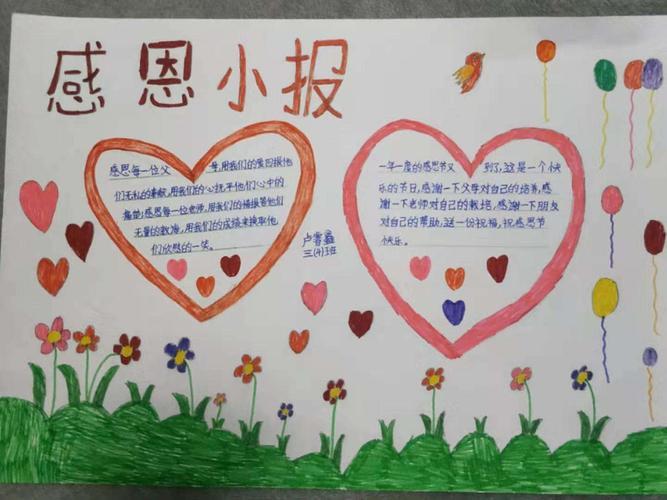 感恩小报
感恩每一位父 母,用我们的爱回报他
们无私的奉献,用我们的心抚平他们心中的
感恩每一位老师,用我们的 报答他们
无量的教海,用我们的成绩来换取他
们欣慰的一笑。
卢睿
三(4)班
一年一度的感恩节又 到了,这是一个快
乐的节日,感谢一下父母对自己的培养,感
谢一下老师对自己的栽培,感谢一下朋友
对自己的帮助,送一份祝福,祝感恩节
快乐。